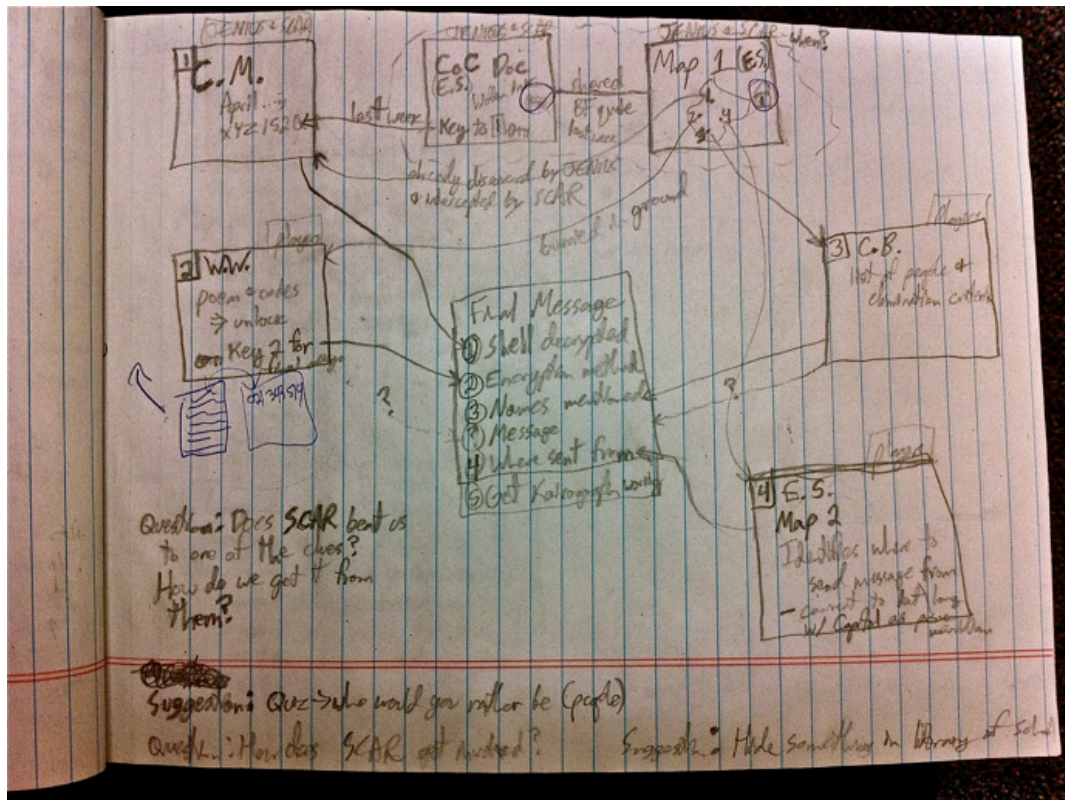 JENIUS & SCAR
1
C.M.
April
XYZ 1520
last week
JENIUS & SCAR
CoC Doc
(E.S.)
Key to
shared
last week
JENIUS & SCAR
when?
Map 1 (E.S.)
1
2
3
4
already discovered by JENIUS
& intercepted by SCAR
buried in ground
players
2 W.W.
poem & codes
⇒ unlock
Key 2 for
Final Message
① Shell decrypted
② Encryption method
③ Names mentioned
Message
4 Where sent from
⑤ Get Kairograph working
?
?
players
3 C.B.
list of people &
elimination criteria
players
4 E.S.
Map 2
Identifies where to
send message from
– convert to lat long
w/ Capital as prime
meridian
Question: Does SCAR beat us
to one of the clues?
How do we get it from
them?
Suggestion: Quiz → who would you rather be (people)
Question: How does SCAR get involved?
Suggestion: Hide something in library of